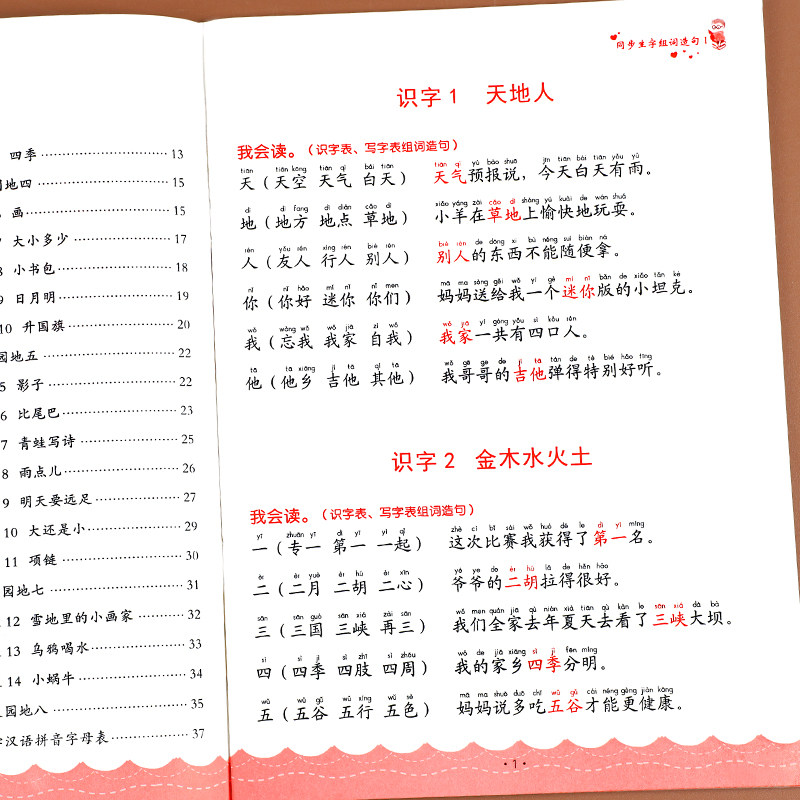 四季 13
园地四 15
画 15
大小多少 17
8 小书包 18
9 日月明 19
10 升国旗 20
园地五 22
5 影子 22
6 比尾巴 23
7 青蛙写诗 25
8 雨点儿 26
9 明天要远足 27
10 大还是小 29
11 项链 30
园地七 31
12 雪地里的小画家 32
13 乌鸦喝水 33
14 小蜗牛 34
园地八 35
汉语拼音字母表 37
同步生字组词造句
识字1 天地人
我会读。(识字表、写字表组词造句)
tiān tiān kōng tiān qì bái tiān tiān qì yù bào shuō jīn tiān bái tiān yǒu yǔ
天(天空 天气 白天) 天气预报说,今天白天有雨。
dì dì fang dì diǎn cǎo dì xiǎo yáng zài cǎo dì shàng yú kuài de wán shuǎ
地(地方 地点 草地) 小羊在草地上愉快地玩耍。
rén yǒu rén xíng rén bié rén bié rén de dōng xi bù néng suí biàn ná
人(友人 行人 别人) 别人的东西不能随便拿。
nǐ nǐ hǎo mí nǐ nǐ men mā ma sòng gěi wǒ yí gè mí nǐ bǎn de xiǎo tǎn kè
你(你好 迷你 你们) 妈妈送给我一个迷你版的小坦克。
wǒ wàng wǒ wǒ jiā zì wǒ wǒ jiā yí gòng yǒu sì kǒu rén
我(忘我 我家 自我) 我家一共有四口人。
tā tā xiāng jí tā qí tā wǒ gē ge de jí tā tán de tè bié hǎo tīng
他(他乡 吉他 其他) 我哥哥的吉他弹得特别好听。
识字2 金木水火土
我会读。(识字表、写字表组词造句)
yī zhuān yī dì yī yì qǐ zhè cì bǐ sài wǒ huò dé le dì yī míng
一(专一 第一 一起) 这次比赛我获得了第一名。
èr èr yuè èr hú èr xīn yé ye de èr hú lā de hěn hǎo
二(二月 二胡 二心) 爷爷的二胡拉得很好。
sān sān guó sān xiá zài sān wǒ men quán jiā qù nián xià tiān qù kàn le sān xiá dà bà
三(三国 三峡 再三) 我们全家去年夏天去看了三峡大坝。
sì sì jì sì zhī sì zhōu wǒ de jiā xiāng sì jì fēn míng
四(四季 四肢 四周) 我的家乡四季分明。
wǔ wǔ gǔ wǔ xíng wǔ sè mā ma shuō duō chī wǔ gǔ cái néng gèng jiàn kāng
五(五谷 五行 五色) 妈妈说多吃五谷才能更健康。
·1·